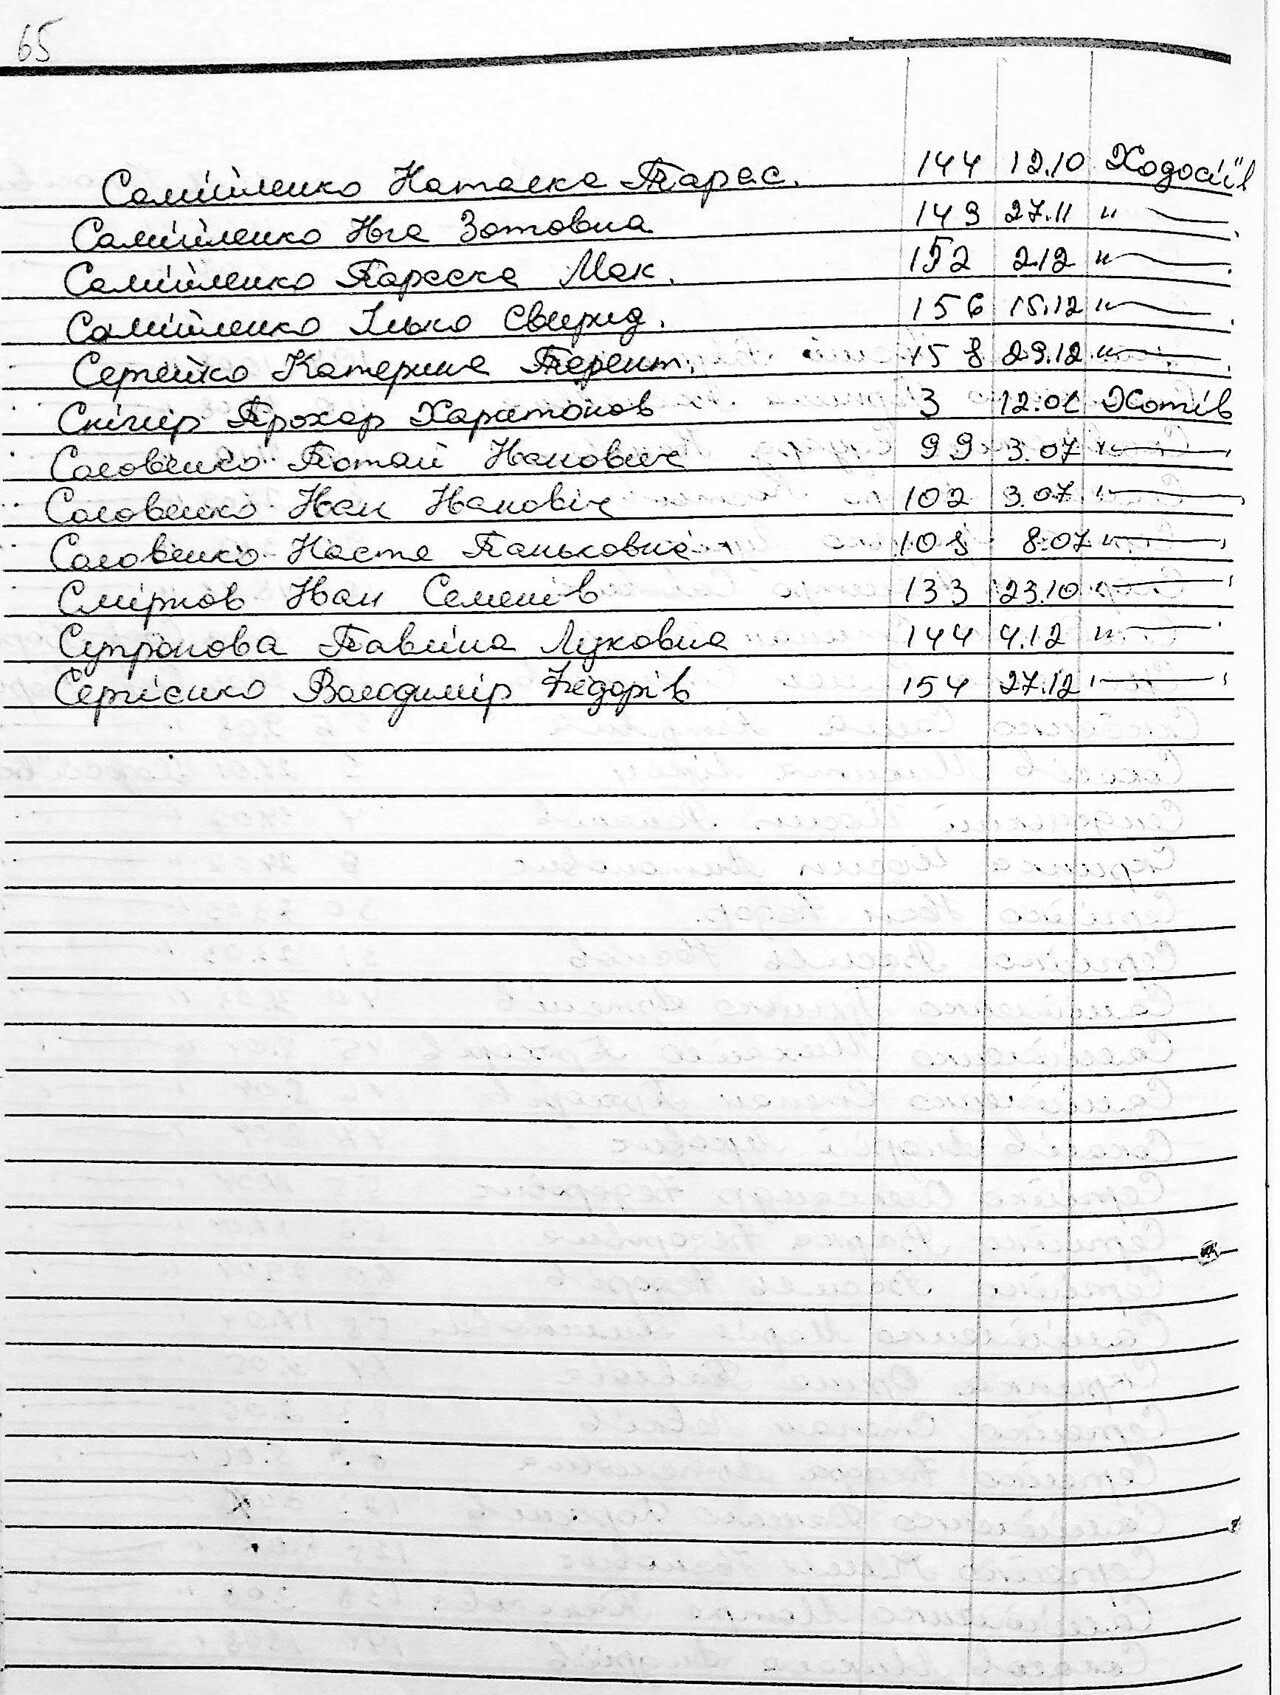 65
Самійленко Наталка Тарас. 144 12.10 Ходосіїв
Самійленко Івга Зотовна 149 27.11 "—
Самійленко Параска Мак. 152 2.12 "—
Самійленко Ілько Свирид. 156 15.12 "—
Сергейко Катерина Терент. 158 29.12 "—
Снігир Прохор Харитонов 3 12.01 Хотів
Соловейко Потап Іванович 99 3.07 "—
Соловейко Іван Іванович 102 3.07 "—
Соловейко Настя Паньковна 108 8.07 "—
Смірнов Іван Семенів 133 23.10 "—
Супронова Павліна Луковна 144 4.12 "—
Сергієнко Володимір Федорів 154 27.12 "—